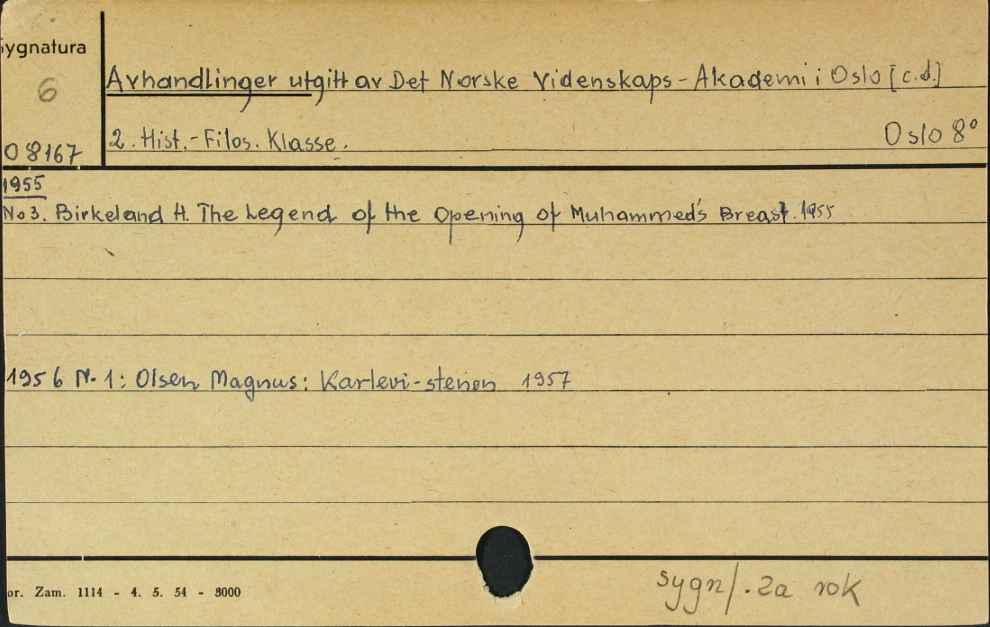 Sygnatura
6
O 8167
Avhandlinger utgitt av Det Norske Videnskaps-Akademi i Oslo [c.d.]
2. Hist.-Filos. Klasse.
Oslo 8°
1955
No 3. Birkeland H. The Legend of the Opening of Muhammed's Breast. 1955
1956 N. 1: Olsen Magnus: Karlevi-stenen 1957
or. Zam. 1114 - 4. 5. 54 - 8000
sygn/. za rok